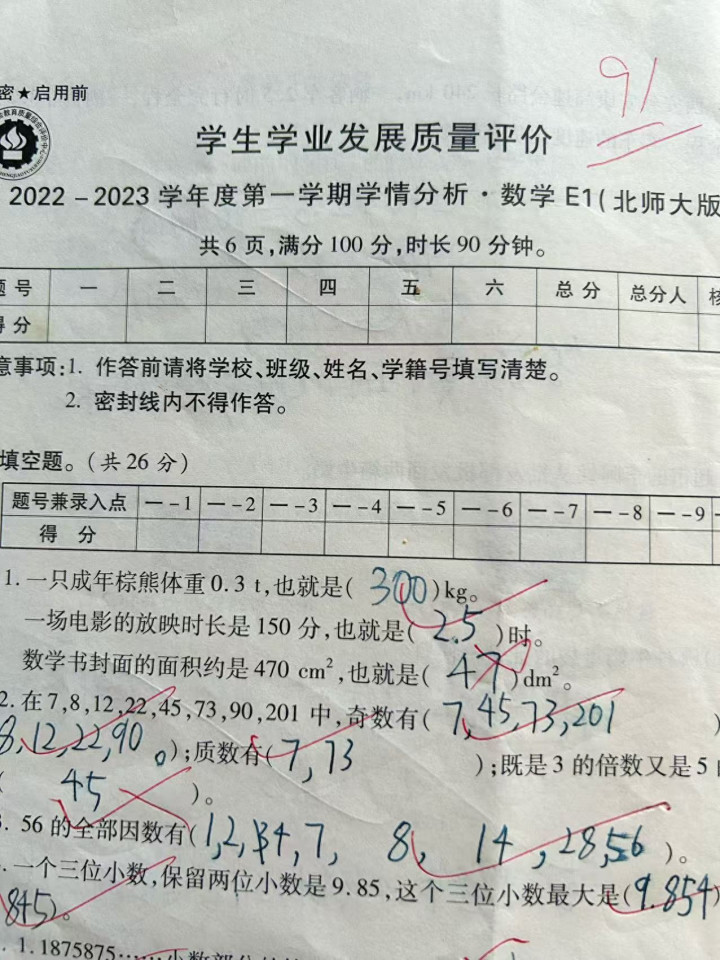 91
密★启用前
学生学业发展质量评价
2022-2023学年度第一学期学情分析·数学E1(北师大版
共6页,满分100分,时长90分钟。
题号 一 二 三 四 五 六 总分 总分人 核
得分
意事项:1. 作答前请将学校、班级、姓名、学籍号填写清楚。
2. 密封线内不得作答。
填空题。(共26分)
题号兼录入点 一-1 一-2 一-3 一-4 一-5 一-6 一-7 一-8 一-9
得 分
1. 一只成年棕熊体重0.3 t,也就是( 300 )kg。
一场电影的放映时长是150分,也就是( 2.5 )时。
数学书封面的面积约是470 cm²,也就是( 47 )dm²。
2. 在7,8,12,22,45,73,90,201中,奇数有( 7,45,73,201 )
8,12,22,90。);质数有( 7,73 );既是3的倍数又是5
( 45 )。
3. 56的全部因数有( 1,2,4,7, 8, 14, 28,56 )。
一个三位小数,保留两位小数是9.85,这个三位小数最大是( 9.854 )
845)。
1.1875875……小数部分